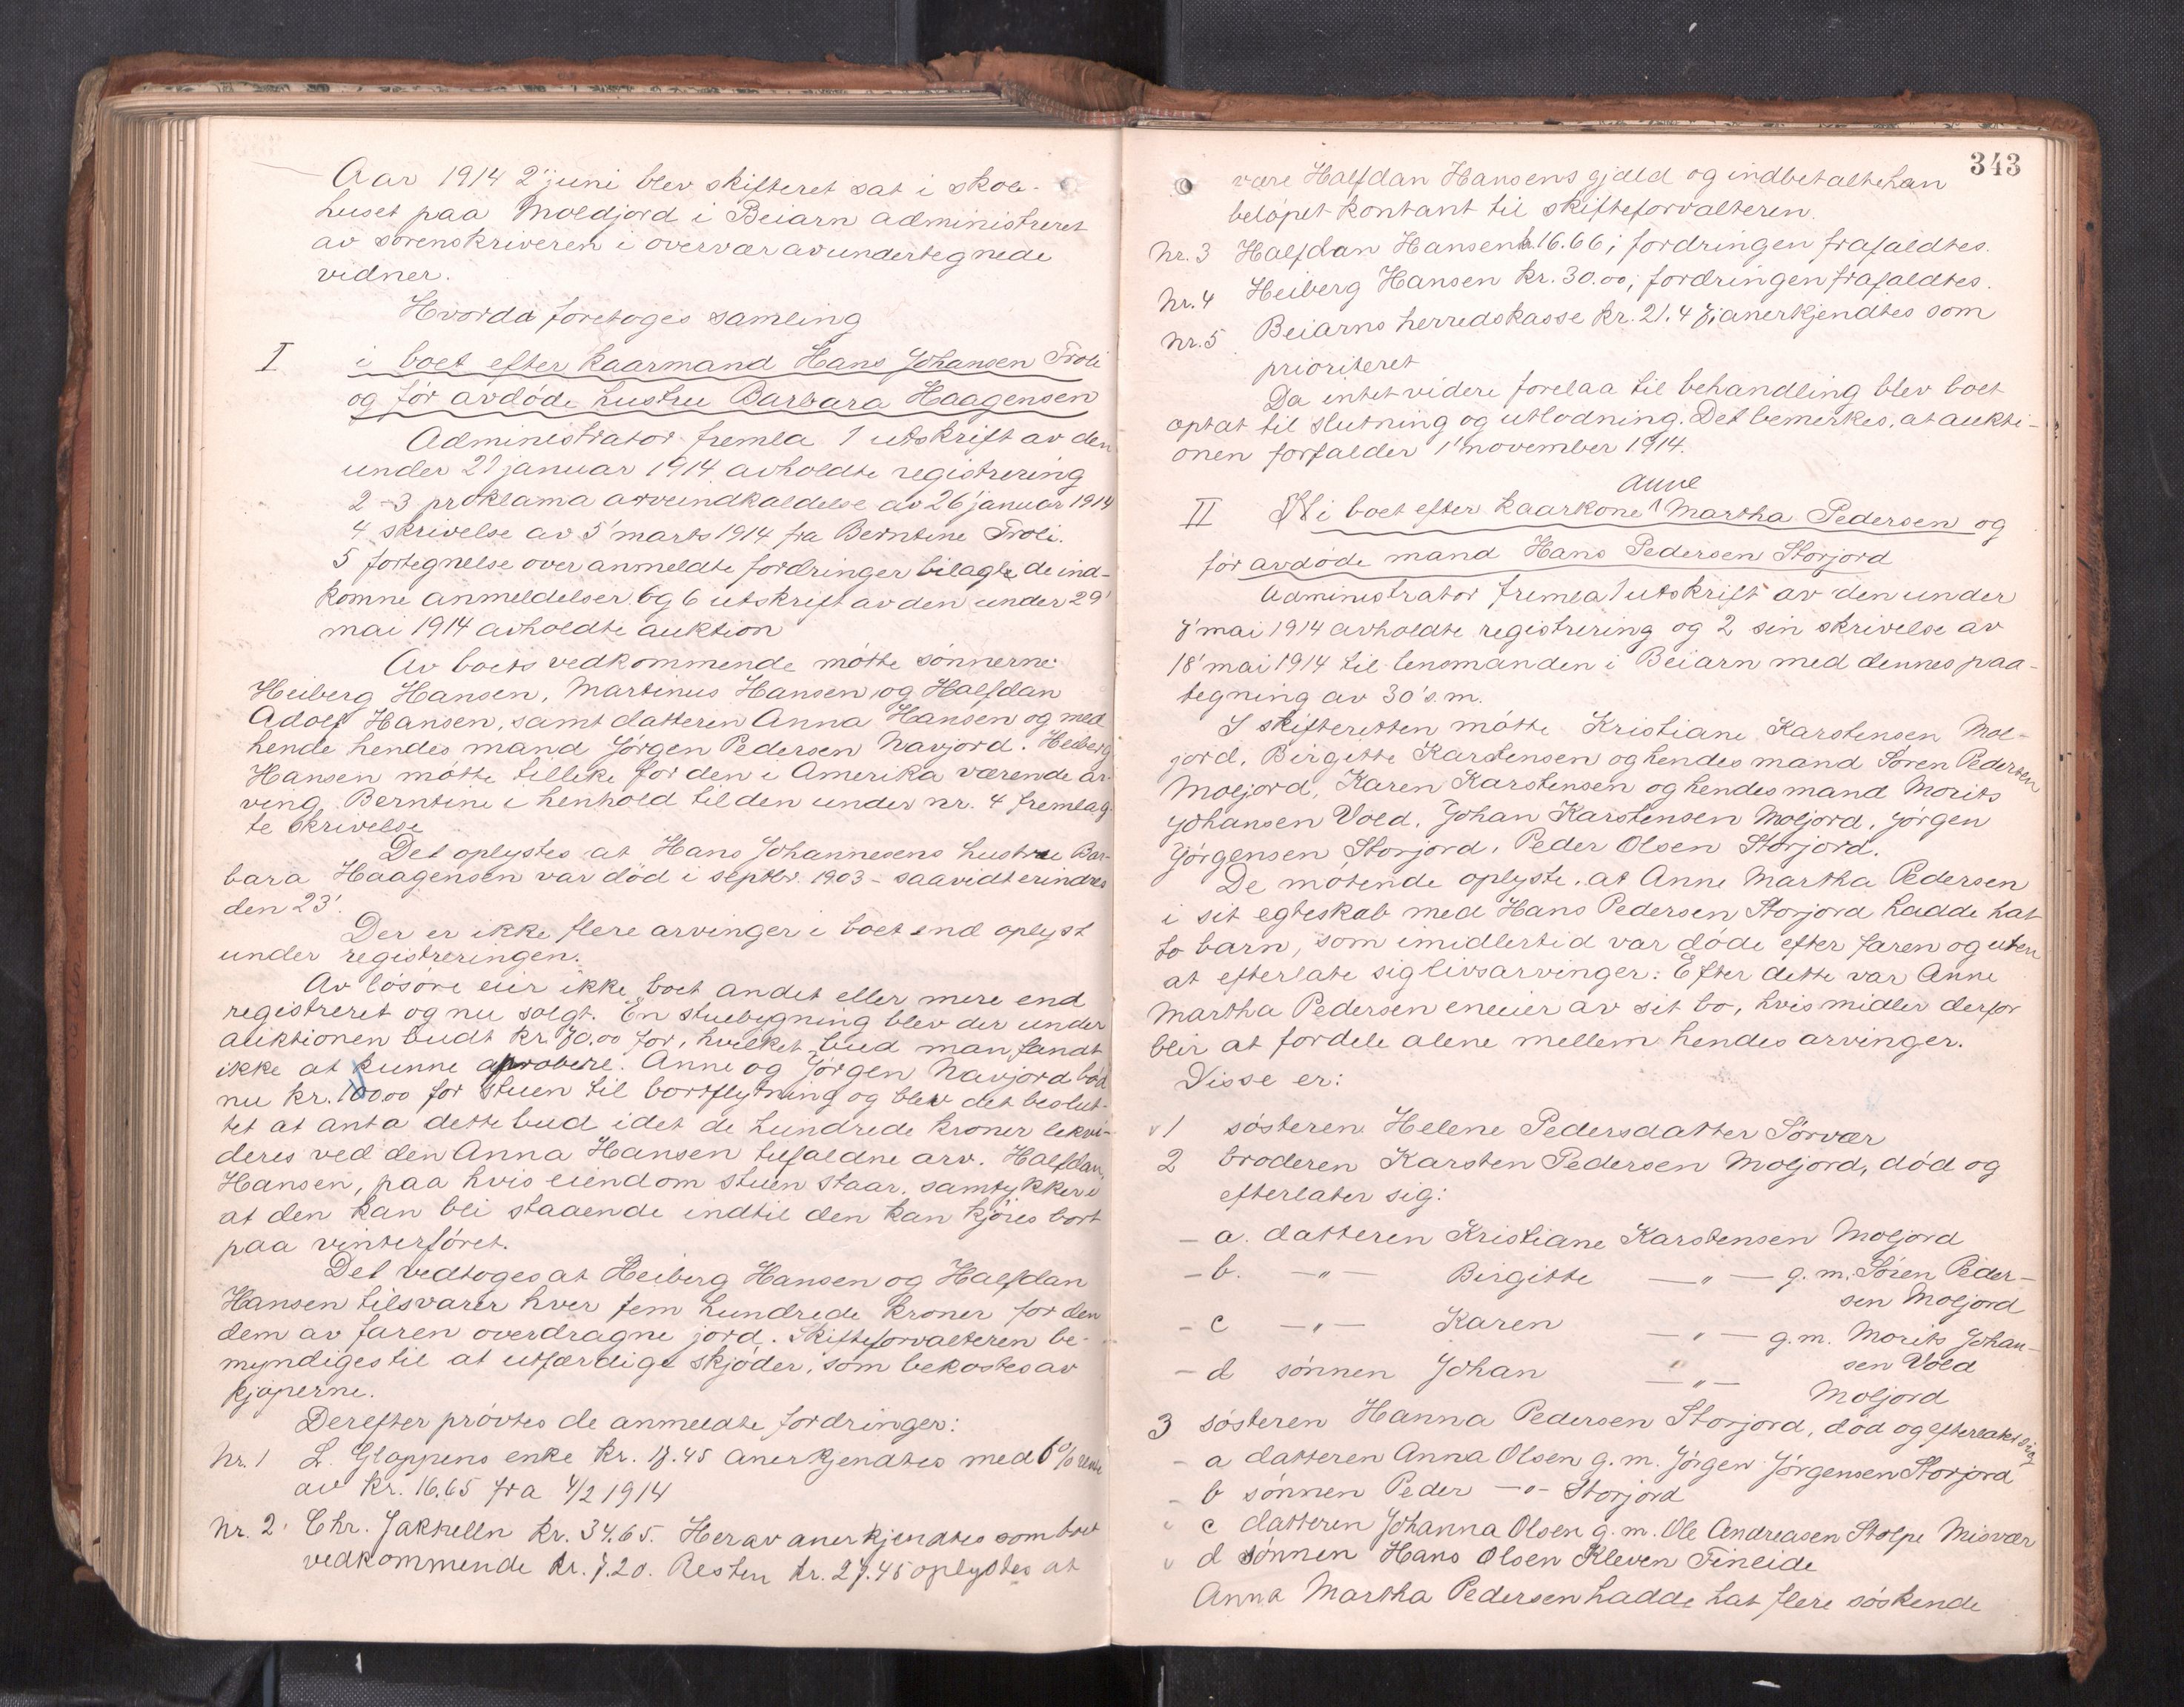 Aar 1914 2' juni blev skifteret sat i skole-
huset paa Moldjord i Beiarn administreret
av sorenskriveren i overvær av undertegnede
vidner.
Hvorda foretoges samling
I i boet efter kaarmand Hans Johansen Troli
og før avdøde hustru Barbara Haagensen
Administrator fremla 1 utskrift av den
under 21 januar 1914 avholdte registrering
2-3 proklama arveindkaldelse av 26' januar 1914
4 skrivelse av 5' marts 1914 fra Berntine Troli.
5 fortegnelse over anmeldte fordringer bilagte de ind-
komne anmeldelser og 6 utskrift av den under 29'
mai 1914 avholdte auktion
Av boets vedkommende møtte sønnerne
Heiberg Hansen, Martinus Hansen og Halfdan
Adolf Hansen, samt datteren Anna Hansen og med
hende hendes mand Jørgen Pedersen Navjord. Heiberg
Hansen møtte tillike for den i Amerika værende ar-
ving Berntine i henhold til den under nr. 4 fremlag-
te skrivelse
Det oplystes at Hans Johannesens hustru Bar-
bara Haagensen var død i septbr. 1903 - saavidt erindres
den 23'.
Der er ikke flere arvinger i boet end oplyst
under registreringen.
Av løsøre eier ikke boet andet eller mere end
registreret og nu solgt. En stuebygning blev der under
auktionen budt kr. 70.00 for, hvilket bud man fandt
ikke at kunne aprobere. Anne og Jørgen Navjord bød
nu kr. 100.00 for stuen til bortflytning og blev det beslut-
tet at anta dette bud idet de hundrede kroner likvi-
deres ved den Anna Hansen tilfaldne arv. Halfdan
Hansen, paa hvis eiendom stuen staar, samtykker i
at den kan bli staaende indtil den kan kjøres bort
paa vinterføret.
Det vedtoges at Heiberg Hansen og Halfdan
Hansen tilsvarer hver fem hundrede kroner for den
dem av faren overdragne jord. Skifteforvalteren be-
myndiges til at utfærdige skjøder, som bekostes av
kjøperne.
Derefter prøvtes de anmeldte fordringer:
Nr. 1 L. Gloppens enke kr. 17.45 anerkjendtes med 6% rente
av kr. 16.65 fra 4/2 1914
Nr. 2. Chr. Jakhelln kr. 34.65. Herav anerkjendtes som boet
vedkommende kr. 7.20. Resten kr. 27.45 oplystes at
343
være Halfdan Hansens gjæld og indbetalte han
beløpet kontant til skifteforvalteren.
Nr. 3 Halfdan Hansen kr. 16.66; fordringen frafaldtes.
Nr. 4 Heiberg Hansen kr. 30.00; fordringen frafaldtes.
Nr. 5 Beiarns herredskasse kr. 21.47; anerkjendtes som
prioriteret
Da intet videre forelaa til behandling blev boet
optat til slutning og utlodning. Det bemerkes, at aukti-
onen forfalder 1' november 1914.
Anne
II i boet efter kaarkone Martha Pedersen og
før avdøde mand Hans Pedersen Storjord
Administrator fremla 1 utskrift av den under
7' mai 1914 avholdte registrering og 2 sin skrivelse av
18' mai 1914 til lensmanden i Beiarn med dennes paa-
tegning av 30' s.m.
I skifteretten møtte Kristiane Karstensen Mol-
jord, Birgitte Karstensen og hendes mand Søren Pedersen
Moljord, Karen Karstensen og hendes mand Morits
Johansen Vold, Johan Karstensen Moljord, Jørgen
Jørgensen Storjord, Peder Olsen Storjord.
De møtende oplyste, at Anne Martha Pedersen
i sit egteskab med Hans Pedersen Storjord hadde hat
to barn, som imidlertid var døde efter faren og uten
at efterlate sig livsarvinger: Efter dette var Anne
Martha Pedersen eneeier av sit bo, hvis midler derfor
blir at fordele alene mellem hendes arvinger.
Disse er:
v 1 søsteren Helene Pedersdatter Sørvær
2 broderen Karsten Pedersen Moljord, død og
efterlater sig:
- a. datteren Kristiane Karstensen Moljord
- b. -"- Birgitte -"- g. m. Søren Peder-
sen Moljord
- c -"- Karen -"- g. m. Morits Johan-
sen Vold
- d sønnen Johan -"- Moljord
3 søsteren Hanna Pedersen Storjord, død og efterlatt sig
- a datteren Anna Olsen g. m. Jørgen Jørgensen Storjord
- b sønnen Peder -"- Storjord
v c datteren Johanna Olsen g. m. Ole Andreasen Stolpe Misvær
v d sønnen Hans Olsen Kleven Fineide
Anna Martha Pedersen hadde hat flere søskende